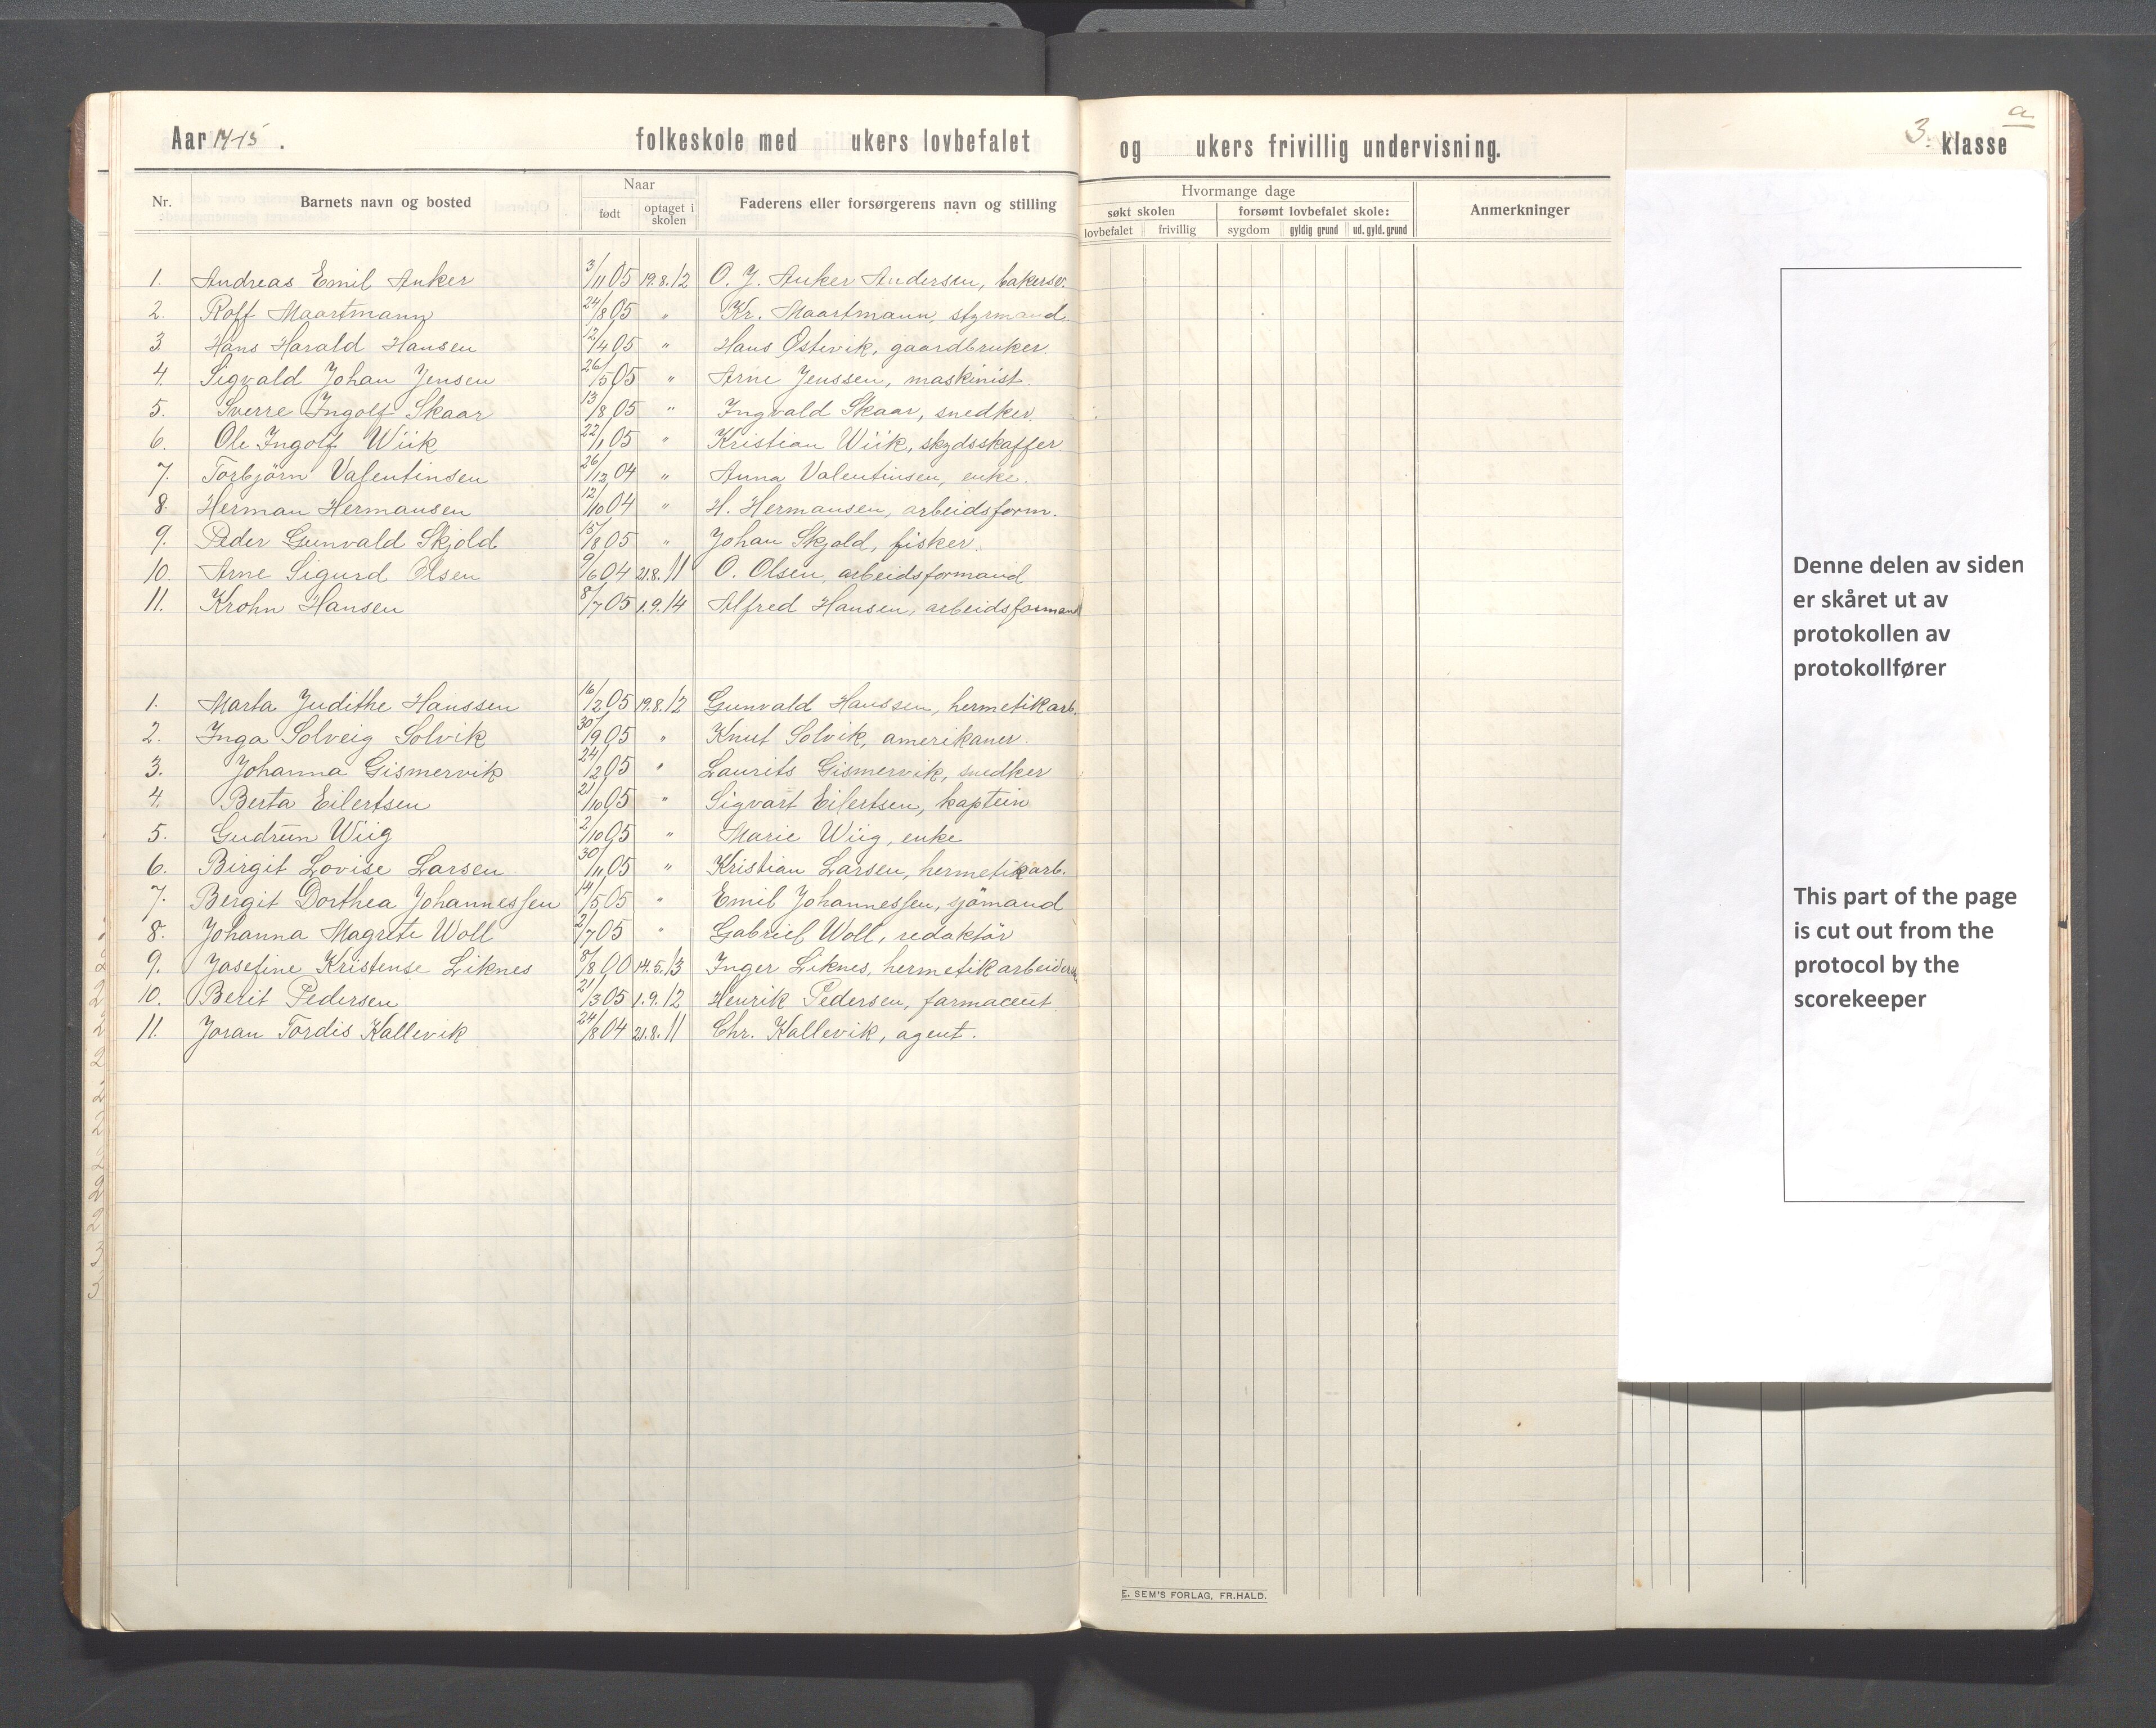 Aar 14-15. folkeskole med ukers lovbefalet og ukers frivillig undervisning. 3. klasse a
Naar Hvormange dage
Nr. Barnets navn og bosted født optaget i skolen Faderens eller forsørgerens navn og stilling søkt skolen forsømt lovbefalet skole: Anmerkninger
lovbefalet frivillig sygdom gyldig grund ud. gyld. grund
1. Andreas Emil Anker 3/11 05 19.8.12 O. J. Anker Andersen, bakersv.
2. Rolf Maartmann 24/8 05 " Kr. Maartmann, styrmand.
3. Hans Harald Hansen 12/4 05 " Hans Østevik, gaardbruker.
4. Sigvald Johan Jensen 26/5 05 " Arne Jenssen, maskinist.
5. Sverre Ingolf Skaar 13/8 05 " Ingvald Skaar, snedker.
6. Ole Ingolf Wiik 22/1 05 " Kristian Wiik, skydsskaffer.
7. Torbjörn Valentinsen 26/12 04 " Anna Valentinsen, enke.
8. Herman Hermansen 12/10 04 " H. Hermansen, arbeidsform.
9. Peder Gunvald Skjold 15/8 05 " Johan Skjold, fisker.
10. Arne Sigurd Olsen 9/6 04 21.8.11 O. Olsen, arbeidsformand
11. Krohn Hansen 8/7 05 1.9.14 Alfred Hansen, arbeidsformand
1. Marta Judithe Hanssen 16/2 05 19.8.12 Gunvald Hanssen, hermetikarb.
2. Inga Solveig Solvik 30/9 05 " Knut Solvik, amerikaner.
3. Johanna Gismervik 24/2 05 " Laurits Gismervik, snedker
4. Berta Eilertsen 21/10 05 " Sigvart Eilertsen, kaptein
5. Gudrun Wiig 2/10 05 " Marie Wiig, enke
6. Birgit Lovise Larsen 30/11 05 " Kristian Larsen, hermetikarb.
7. Bergit Dorthea Johannessen 14/5 05 " Emil Johannessen, sjömand
8. Johanna Magrete Woll 2/7 05 " Gabriel Woll, redaktör
9. Josefine Kristense Liknes 8/8 00 14.5.13 Inger Liknes, hermetikarbeiderske
10. Berit Pedersen 21/3 05 1.9.12 Henrik Pedersen, farmaceut
11. Joran Tordis Kallevik 24/8 04 21.8.11 Chr. Kallevik, agent.
E. SEM'S FORLAG, FR.HALD.
Denne delen av siden
er skåret ut av
protokollen av
protokollfører
This part of the page
is cut out from the
protocol by the
scorekeeper